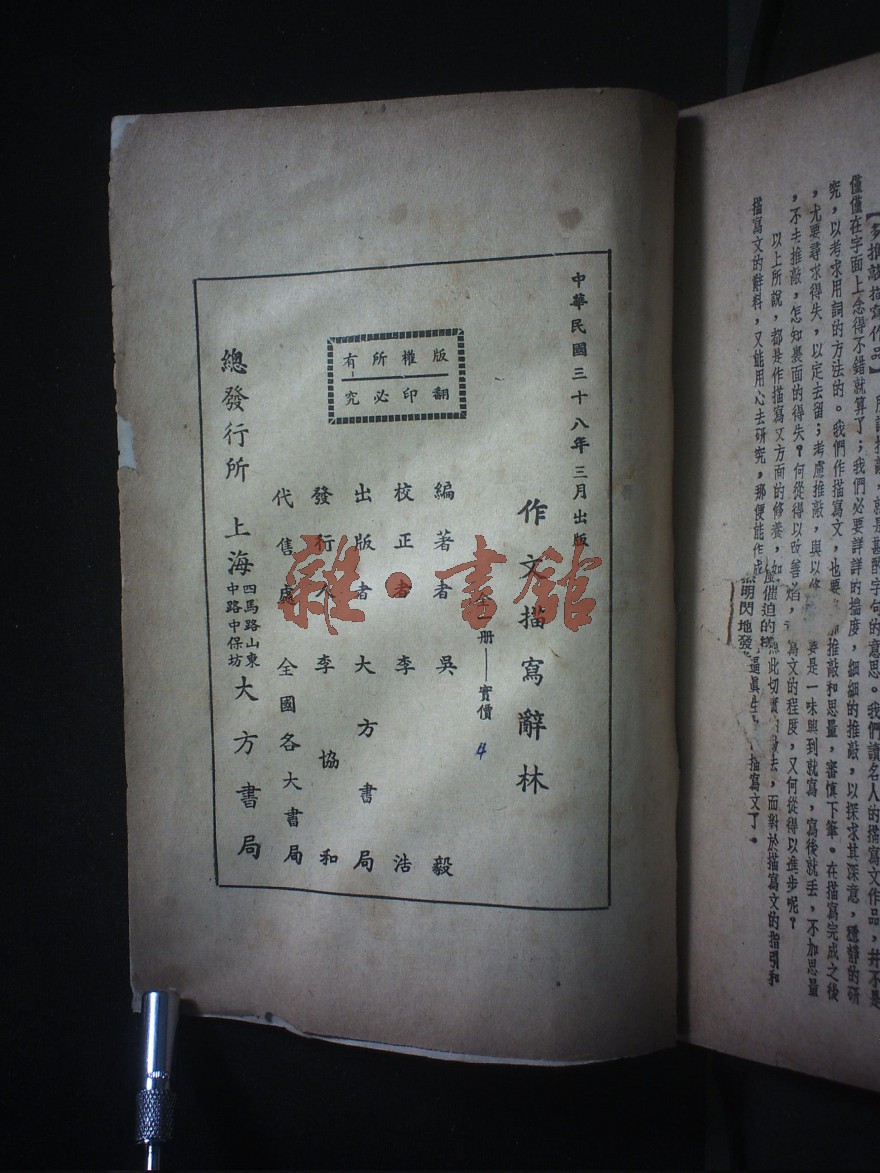 【多推敲描寫作品】所謂推敲，就是斟酌字句的意思。我們讀名人的描寫文作品，並不是
僅僅在字面上念得不錯就算了；我們必要詳詳的揣度，細細的推敲，以探求其深意，穩靜的研
究，以考求用詞的方法的。我們作描寫文，也要推敲和思量，審慎下筆。在描寫完成之後
，尤要尋求得失，以定去留；考慮推敲，與以修要是一味興到就寫，寫後就丢，不加思量
，不去推敲，怎知裏面的得失？何從得以改善寫文的程度，又何從得以進步呢？
以上所說，都是作描寫文方面的修養，如此切實去，而對於描寫文的指引和
描寫文的辭料，又能用心去研究，那便能作成逼眞生描寫文了。
催迫的樣
明閃地發
中華民國三十八年三月出版
作文描寫辭林
全一册——實價 4
版權所有
翻印必究
編著者 吳毅
校正者 李浩
出版者 大方書局
發行人 李協和
代售處 全國各大書局
總發行所 上海 四馬路山東中路中保坊 大方書局
雜·書館